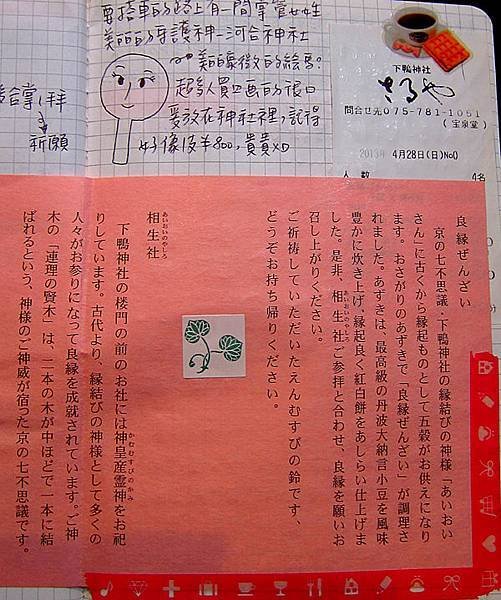 要搭車的路上有一間掌管女性
美麗的守護神─河合神社
美麗象徵的繪馬?
超多人買四画的很口
要放在神社裡,記得
好像後半800,貴貴XD
合掌,拜
祈願
下鴨神社
さるや
問合せ先075-781-1051
(宝泉堂)
2013年 4月28日(日)No0
人 数 4名
良縁ぜんざい
京の七不思議・下鴨神社の縁結びの神様「あいおい
さん」に古くから縁起ものとして五穀がお供えになり
ます。おさがりのあずきで「良縁ぜんざい」が調理さ
れました。あずきは、最高級の丹波大納言小豆を風味
豊かに炊き上げ、縁起良く紅白餅をあしらい仕上げま
した。是非、相生社ご参拝と合わせ、良縁を願いお
召し上がりください。
ご祈祷していただいたえんむすびの鈴です、
どうぞお持ち帰りください。
あいおいのやしろ
相生社
下鴨神社の楼門の前のお社には神皇産霊神をお祀
かむむすびのかみ
りしています。古代より、縁結びの神様として多くの
人々がお参りになって良縁を成就されています。ご神
木の「連理の賢木」は、二本の木が中ほどで一本に結
ばれるという、神様のご神威が宿った京の七不思議です。